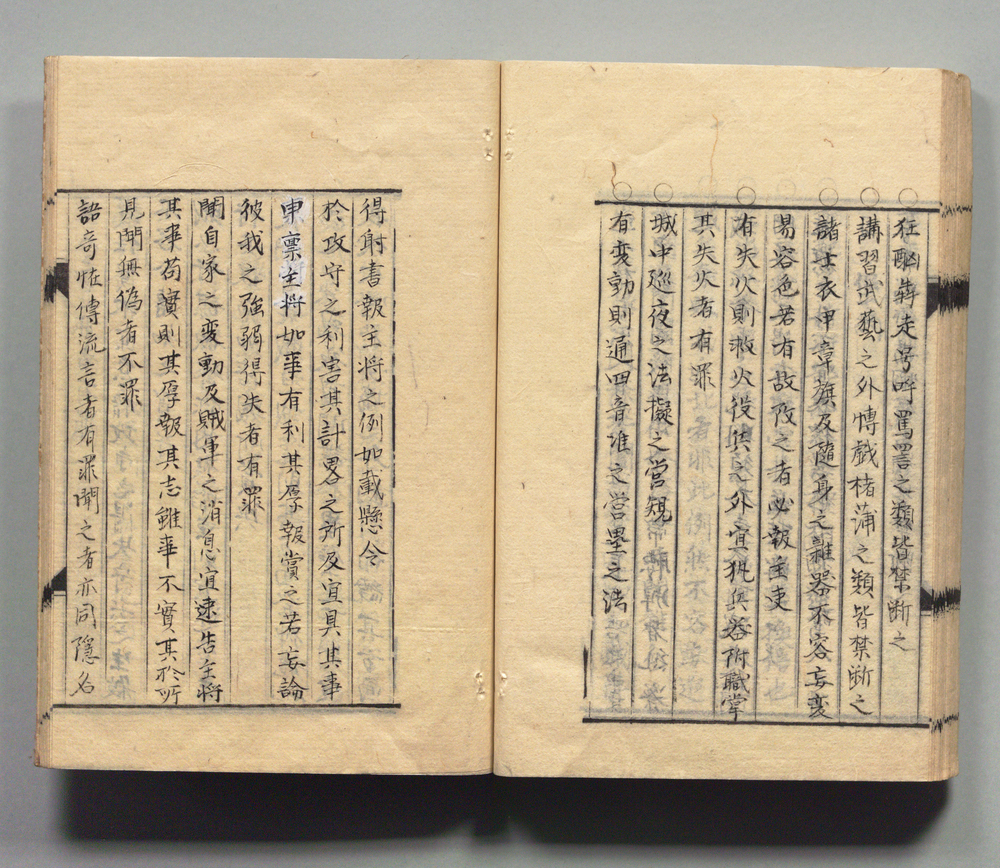 ○狂酗犇走号呼罵詈之類皆禁断之
○講習武藝之外愽戯楮蒲之類皆禁断之
○諸士衣甲章旗及随身之雜器不容妄変
易容色若有故改之者必報主吏
○有失火則救火役兵之外宜執兵器附職掌
其失火者有罪
○城中廵夜之法擬之営規
○有変動則通四音准之営塁之法
得射書報主将之例如載懸令
於攻守之利害其計畧之所及宜具其事
束稟主将如事有利其厚報賞之若妄論
彼我之強弱得失者有罪
聞自家之変動及賊軍之消息宜速告主将
其事苟實則其厚報其志雖事不實其於所
見聞無偽者不罪
語奇怪傳流言者有罪聞之者亦同隱名